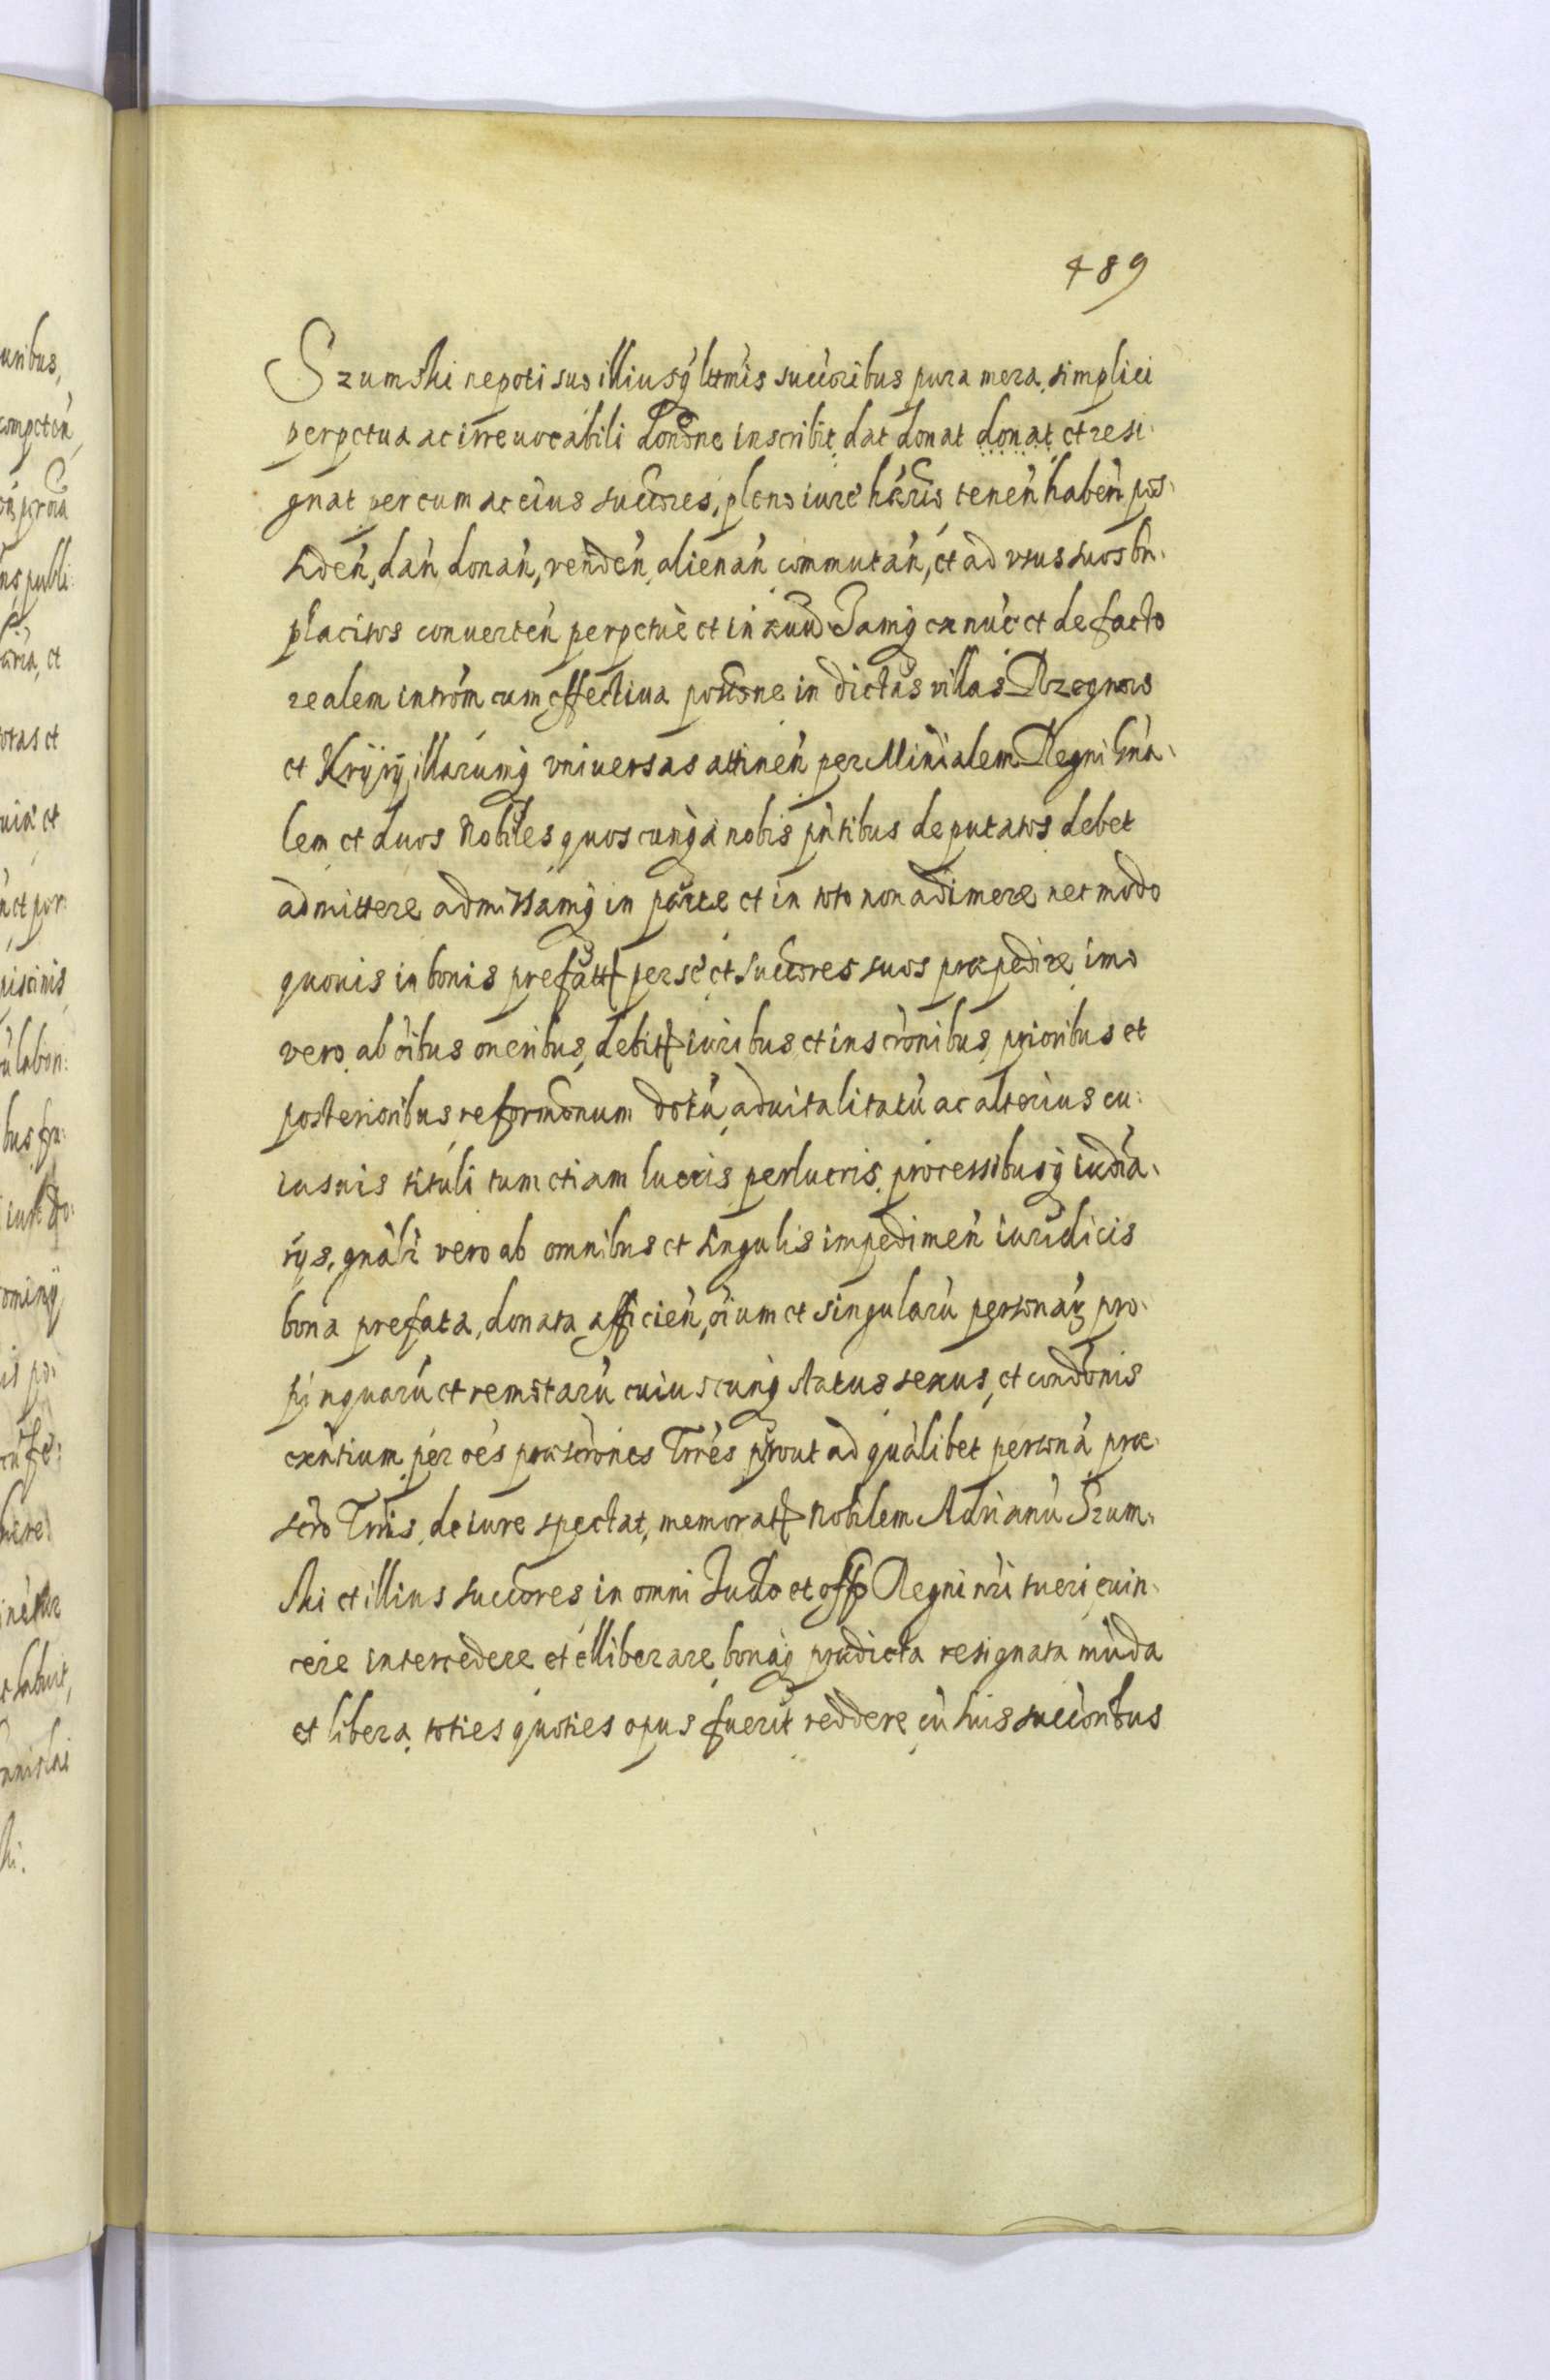 489
Szumski nepoti suo illiusq ltimis succoribus pura mera, simplici
perpetua ac irreuocabili donone inscribit dat donat donat et resi
gnat per eum ac eius succores, pleno iure hærio tenen haben pos
siden, dan, donan, venden, alienan commutan, et ad vsus suos bn
placitos conuerten perpetuè et in æuu Iamq ex nuc et de facto
realem introm cum effectiua possone in dictas villas
et illarumq vniuersas attinen per Minialem Regni Gna
lem et duos Nobiles quoscunq à nobis pntibus deputatos debet
admittere admissamq in parte et in toto non adimere nec modo
quouis in bonis prefatt per se et succores suos præpedire imo
vero ab oibus oneribus, debitt iuribus et inscronibus prioribus et
posterioribus reformonum dotu, aduitalitatu ac alterius cu
iusuis tituli tum etiam lucris perlucris processibusq iudia
rijs, gnali vero ab omnibus et singulis impedimen iuridicis
bona prefata, donata afficien, oium et singularu personar pro
pinquaru et remotaru cuiuscunq status sexus, et condonis
exntium per oes præscrones Trres prout ad qualibet persona præ
scro Trris de iure spectat, memoratt Nobilem Adrianu Szum
ski et illius succores in omni Iudo et offo Regni nri tueri euin
cere intercedere et elliberare bonaq prædicta resignata muda
et libera toties quoties opus fuerit reddere cu suis succoribus